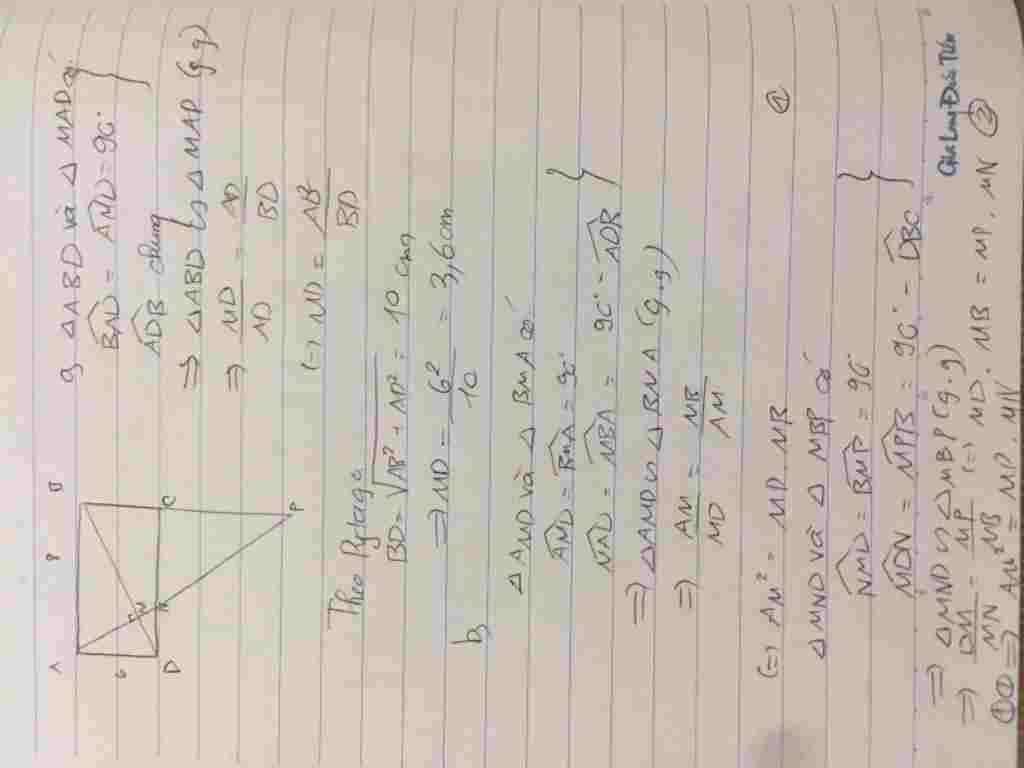 A 8 B
6
M
D N C
P
a, △ABD và △MAD có
BAD = AMD = 90°
ADB chung
⇒ △ABD ∽ △MAD (g.g)
⇒ MD/AD = AD/BD
(=) MD = AB/BD
Theo Pytago
BD = √AB² + AD² = 10 cm
⇒ MD = 6²/10 = 3,6cm
b,
△AMD và △BMA có
AMD = BMA = 90°
MAD = MBA = 90° - ADB
⇒ △AMD ∽ △BMA (g.g)
⇒ AM/MD = MB/AM
(=) AM² = MD. MB ①
△MND và △MBP có
NMD = BMP = 90°
MDN = MPB = 90° - DBC
⇒ △MND ∽ △MBP (g.g)
⇒ DM/MN = MP/MB (=) MD. MB = MP. MN ②
①② ⇒ AM² = MP. MN